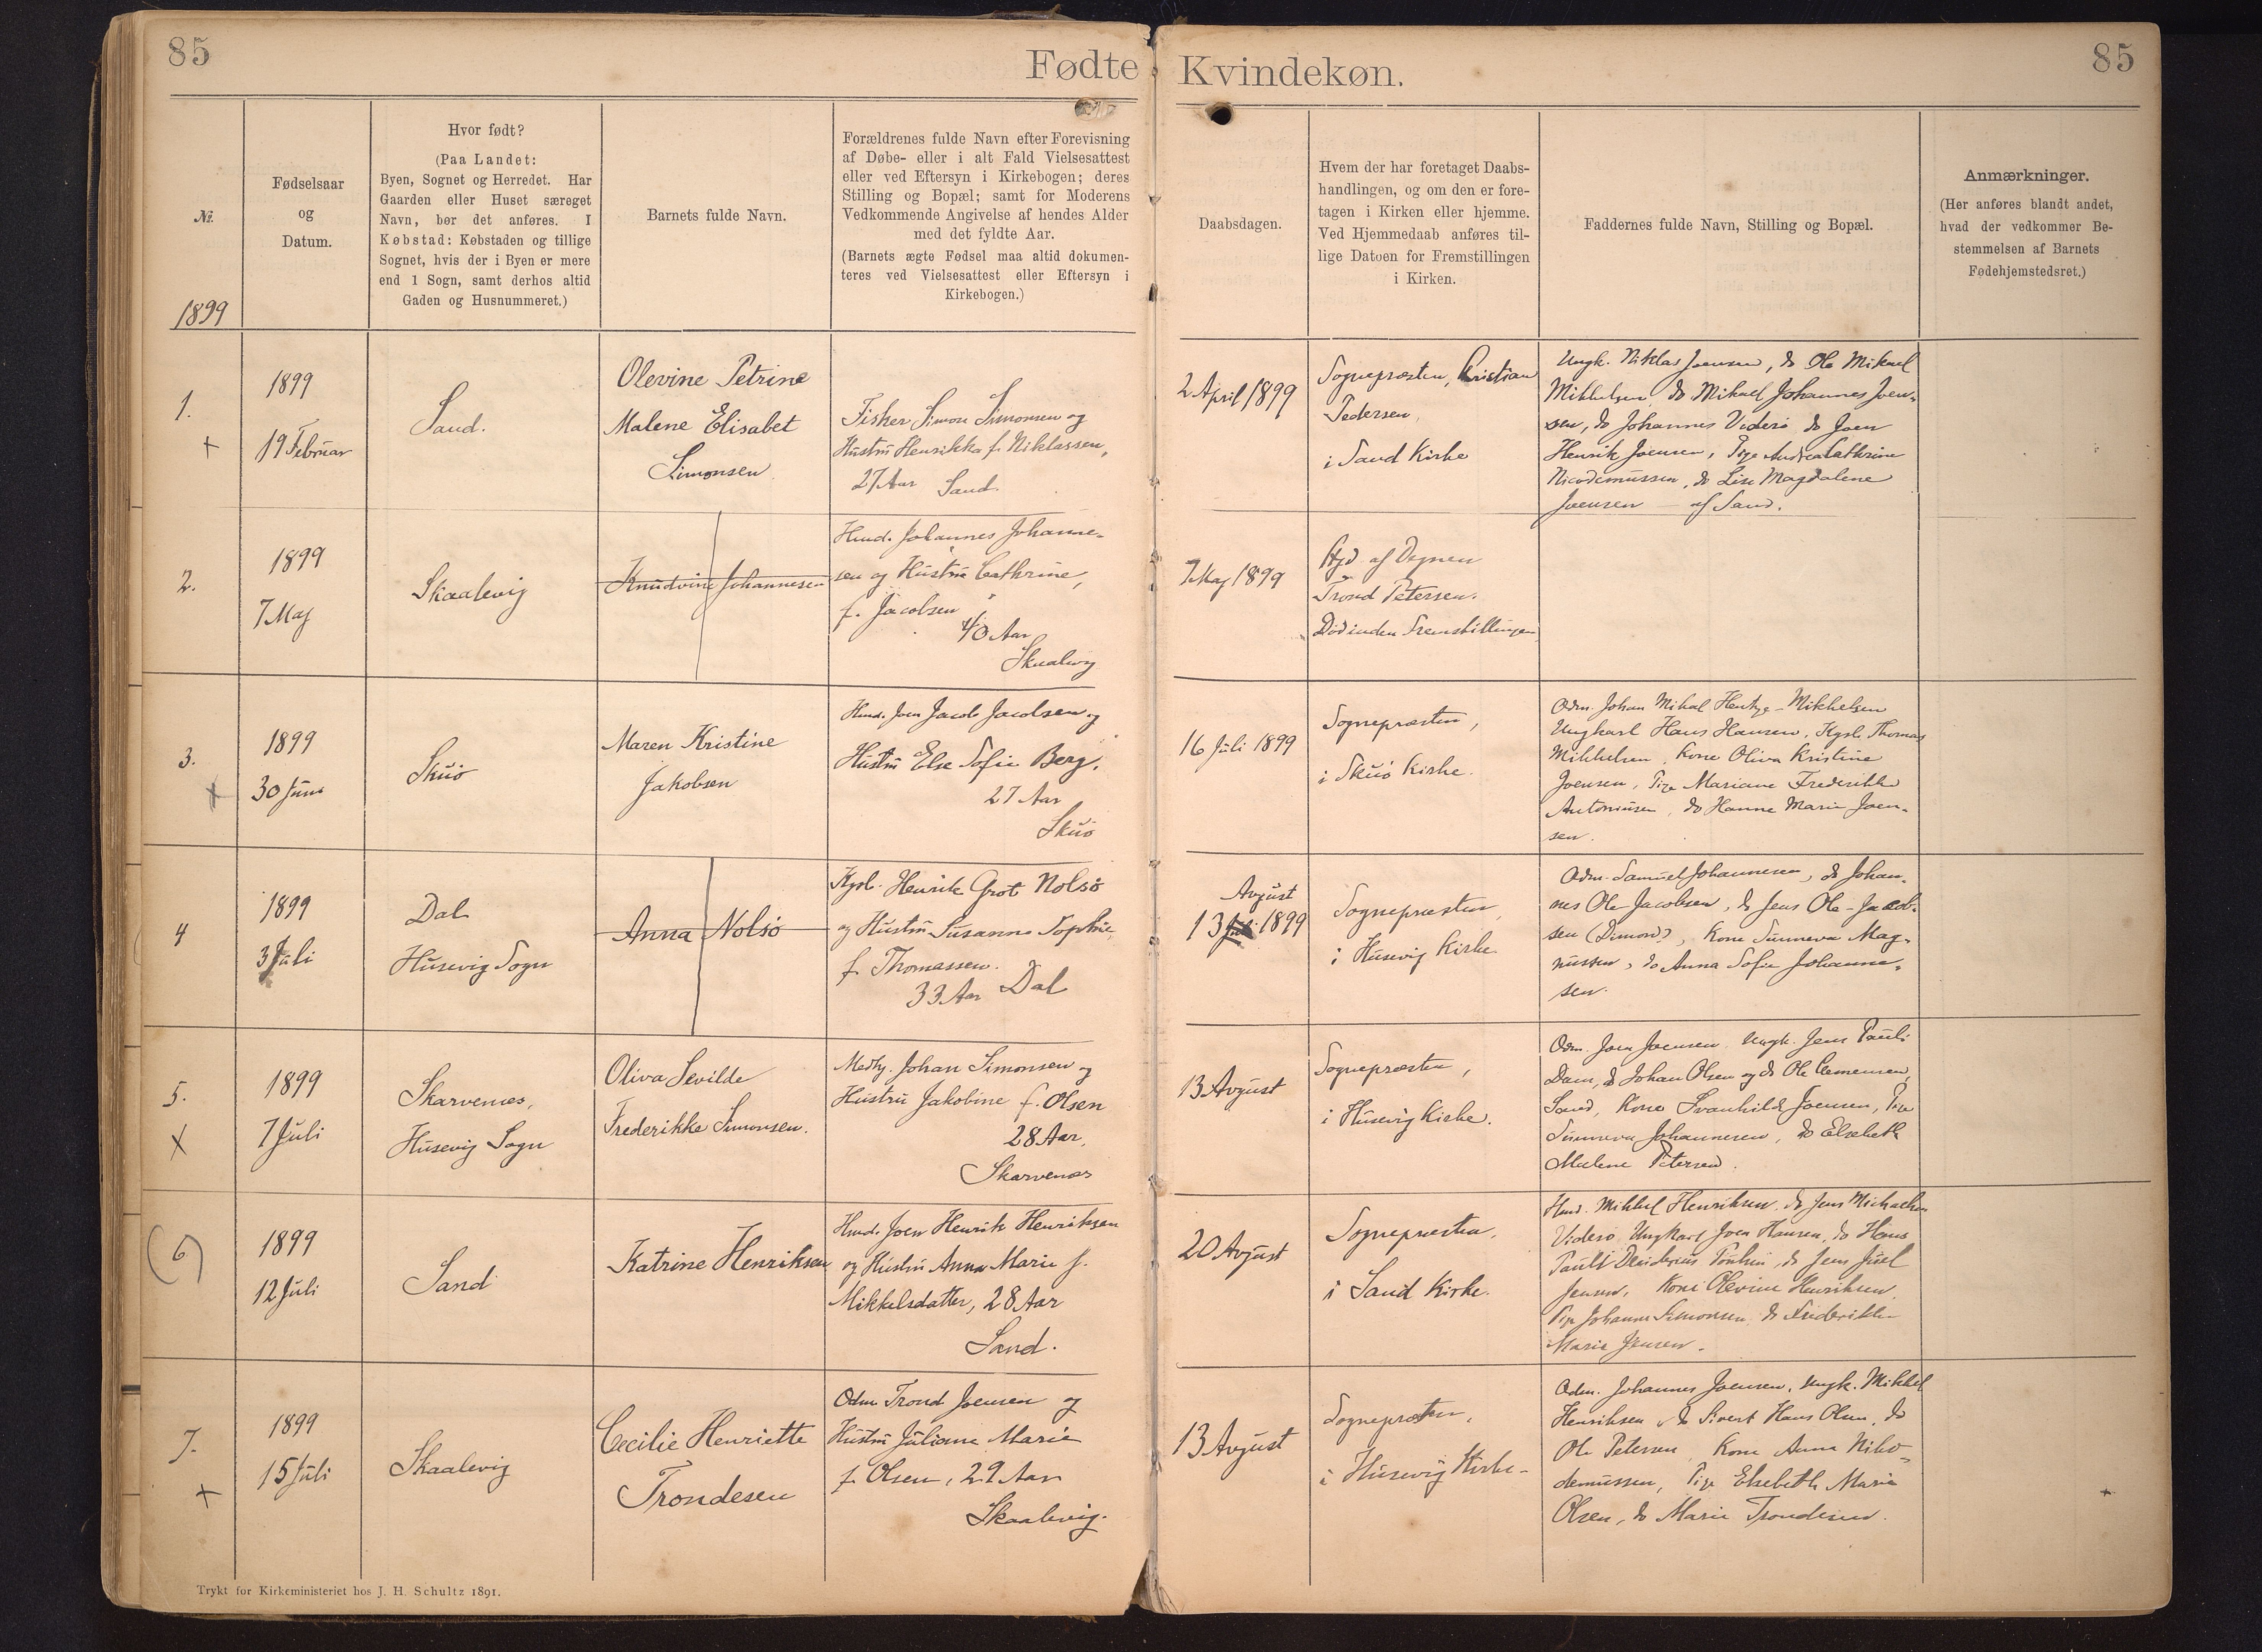 85
Fødte Kvindekøn.
85
№.
1899
Fødselsaar
og
Datum.
Hvor født?
(Paa Landet:
Byen, Sognet og Herredet. Har
Gaarden eller Huset særeget
Navn, bør det anføres. I
Købstad: Købstaden og tillige
Sognet, hvis der i Byen er mere
end 1 Sogn, samt derhos altid
Gaden og Husnummeret.)
Barnets fulde Navn.
Forældrenes fulde Navn efter Forevisning
af Døbe- eller i alt Fald Vielsesattest
eller ved Eftersyn i Kirkebogen; deres
Stilling og Bopæl; samt for Moderens
Vedkommende Angivelse af hendes Alder
med det fyldte Aar.
(Barnets ægte Fødsel maa altid dokumen-
teres ved Vielsesattest eller Eftersyn i
Kirkebogen.)
Daabsdagen.
Hvem der har foretaget Daabs-
handlingen, og om den er fore-
tagen i Kirken eller hjemme.
Ved Hjemmedaab anføres til-
lige Datoen for Fremstillingen
i Kirken.
Faddernes fulde Navn, Stilling og Bopæl.
Anmærkninger.
(Her anføres blandt andet,
hvad der vedkommer Be-
stemmelsen af Barnets
Fødehjemstedsret.)
1.
+
1899
19 Februar
Sand.
Olevine Petrine
Malene Elisabet
Simonsen
Fisker Simon Simonsen og
Hustru Henrikka f. Niklassen,
27 Aar Sand.
2 April 1899
Sognepræsten, Kristian
Pedersen,
i Sand Kirke
Ungk. Niklas Joensen, do Ole Mikael
Mikkelsen, do Mikael Johannes Joen-
sen, do Johannes Viderø do Joen
Henrik Joensen, Pige Andrea Cathrine
Nicodemussen, do Lise Magdalene
Joensen af Sand.
2.
1899
7 Maj
Skaalevig
Knudvine Johannesen
Hmd. Johannes Johanne-
sen og Hustru Cathrine,
f. Jacobsen
40 Aar
Skaalevig
7 Maj 1899
Hjd. af Degnen
Trond Petersen.
Død inden Fremstillingen
3.
+
1899
30 Juni
Skuø
Maren Kristine
Jakobsen
Hmd. Joen Jacob Jacobsen og
Hustru Else Sofie Berg.
27 Aar
Skuø
16 Juli 1899
Sognepræsten,
i Skuø Kirke.
Odm. Johan Mikal Hentze-Mikkelsen
Ungkarl Hans Hansen, Kgsb. Thomas
Mikkelsen, Kone Oliva Kristine
Joensen, Pige Mariane Frederikke
Antoniusen, do Hanne Marie Joen-
sen.
4
1899
3 Juli
Dal
Husevig Sogn
Anna Nolsø
Kgsb. Henrik Grot Nolsø
og Hustru Susanne Sophie,
f. Thomassen.
33 Aar Dal
August
13 Juli 1899
Sognepræsten,
i Husevig Kirke.
Odm. Samuel Johannesen, do Johan-
nes Ole Jacobsen, do Jens Ole-Jacob-
sen (Dimon), Kone Sunneva Mag-
nussen, do Anna Sofie Johanne-
sen.
5.
X
1899
7 Juli
Skarvenes,
Husevig Sogn
Oliva Sevilde
Frederikke Simonsen.
Medhj. Johan Simonsen og
Hustru Jakobine f. Olsen
28 Aar,
Skarvenes
13 Avgust
Sognepræsten,
i Husevig Kirke.
Odm. Joen Joensen, Ungk. Jens Pauli
Dam, do Johan Olsen og do Ole Clemensen,
Sand, Kone Svanhild Joensen, Pige
Sunneva Johannesen, do Elsebeth
Malene Petersen.
(6)
1899
12 Juli
Sand
Katrine Henriksen
Hmd. Joen Henrik Henriksen
og Hustru Anna Marie f.
Mikkelsdatter, 28 Aar
Sand.
20 Avgust
Sognepræsten,
i Sand Kirke.
Hmd. Mikkel Henriksen, do Jens Michaelsen
Viderø, Ungkarl Joen Hansen, do Hans
Pauli Desiderius do Jens Juel
Jensen, Kone Olevine Henriksen,
Pige Johanne Simonsen, do Frederikke
Marie Jensen.
7.
+
1899
15 Juli
Skaalevig
Cecilie Henriette
Trondesen
Odm. Trond Joensen og
Hustru Juliane Marie
f. Olsen, 29 Aar
Skaalevig.
13 Avgust
Sognepræsten,
i Husevig Kirke-
Odm. Johannes Joensen, Ungk. Mikkel
Henriksen, do Sivert Hans Olsen, do
Ole Petersen, Kone Anna Niko-
demussen, Pige Elsebeth Marie
Olsen, do Marie Trondesen.
+
Trykt for Kirkeministeriet hos J. H. Schultz 1891.